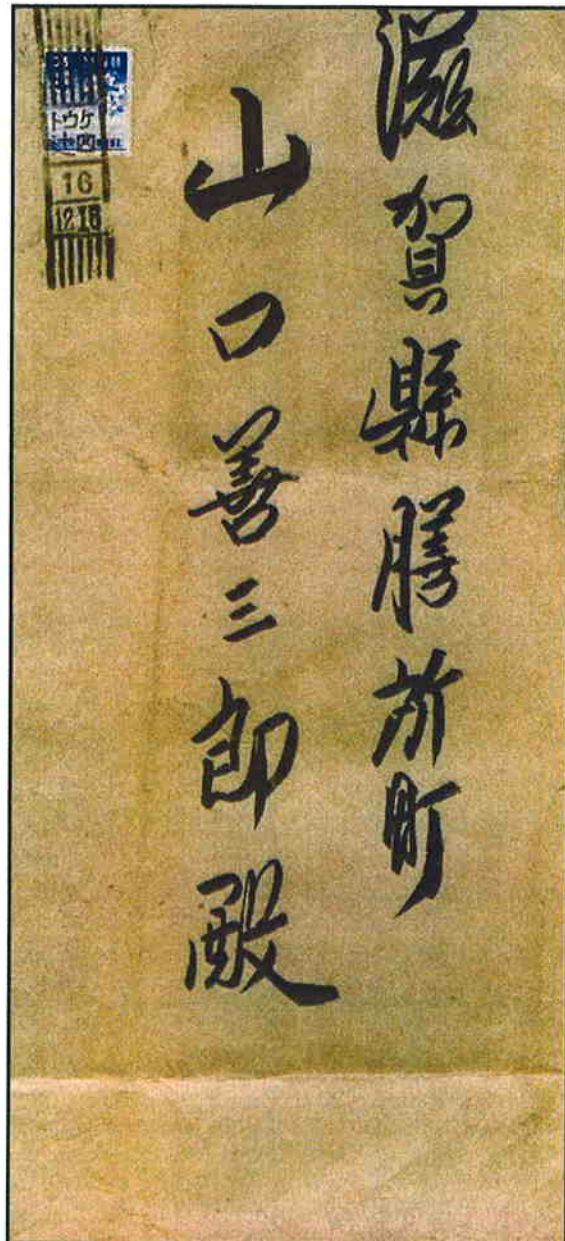 滋賀縣膳所町
山口善三郎殿
16
12.18